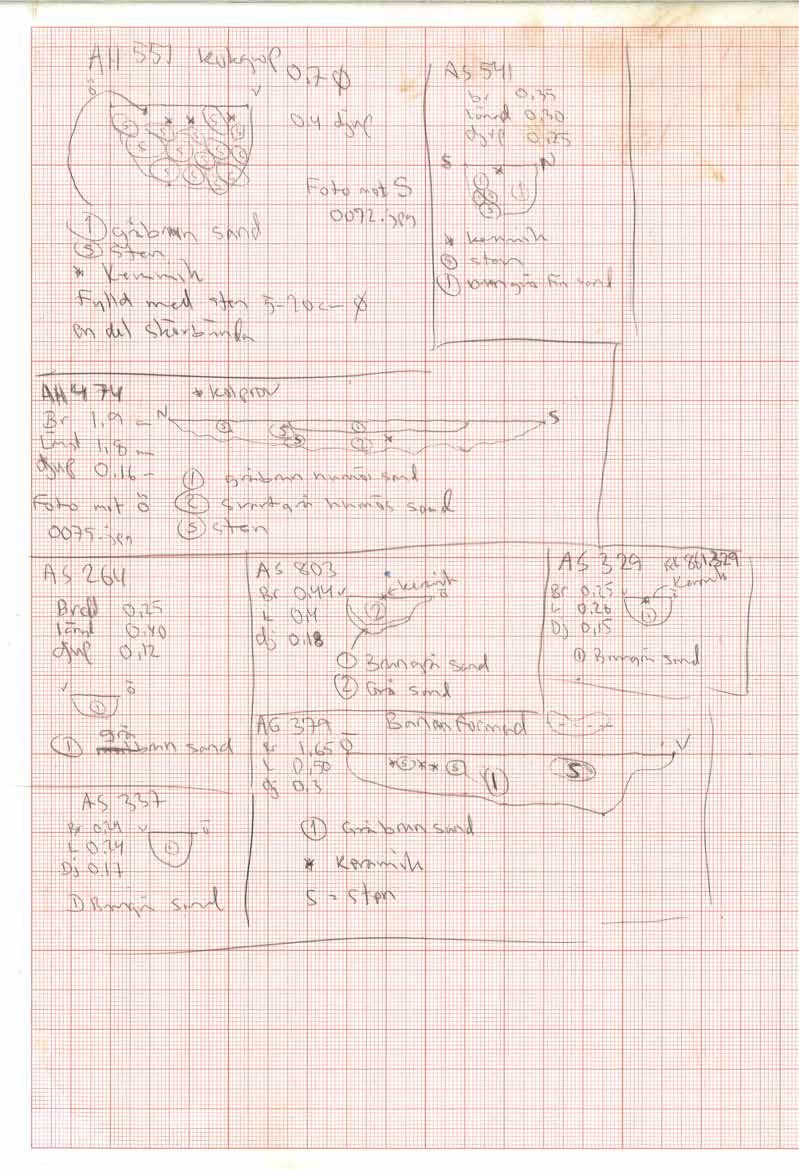 AH 551 kokgrop 0,7 Ø
Ö V
0,4 djup
S
Foto mot S
0072.jpg
① gråbrun sand
Ⓢ Sten
* Keramik
Fylld med sten 5-20 cm Ø
en del skörbrända
AS 541
br 0,35
längd 0,30
djup 0,25
S N
①
* keramik
Ⓢ sten
① brungrå fin sand
AH 474 * Kolprov
N S
Br 1,9 m
Längd 1,8 m
djup 0,16 m
Foto mot Ö
0075.jpg
① gråbrun humös sand
② svartgrå humös sand
Ⓢ sten
AS 264
Bredd 0,25
längd 0,40
djup 0,12
V Ö
①
① gråbrun sand
AS 803
Br 0,44
L 0,4
dj 0,18
keramik
V Ö
②
① Brungrå sand
② Grå sand
AS 329
Br 0,25
L 0,26
Dj 0,15
Keramik
V Ö
①
① Brungrå sand
AG 379 Bananformad
Br 1,65
L 0,50
dj 0,3
Ö V
* Ⓢ * * Ⓢ ① Ⓢ
① Gråbrun sand
* Keramik
S = Sten
AS 337
Br 0,24
L 0,24
Dj 0,17
V Ö
①
① Brungrå sand